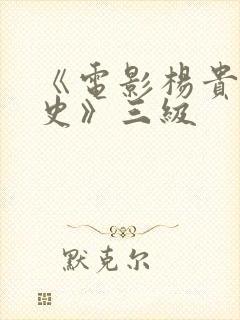 《電影楊貴
史》三級
默克尔